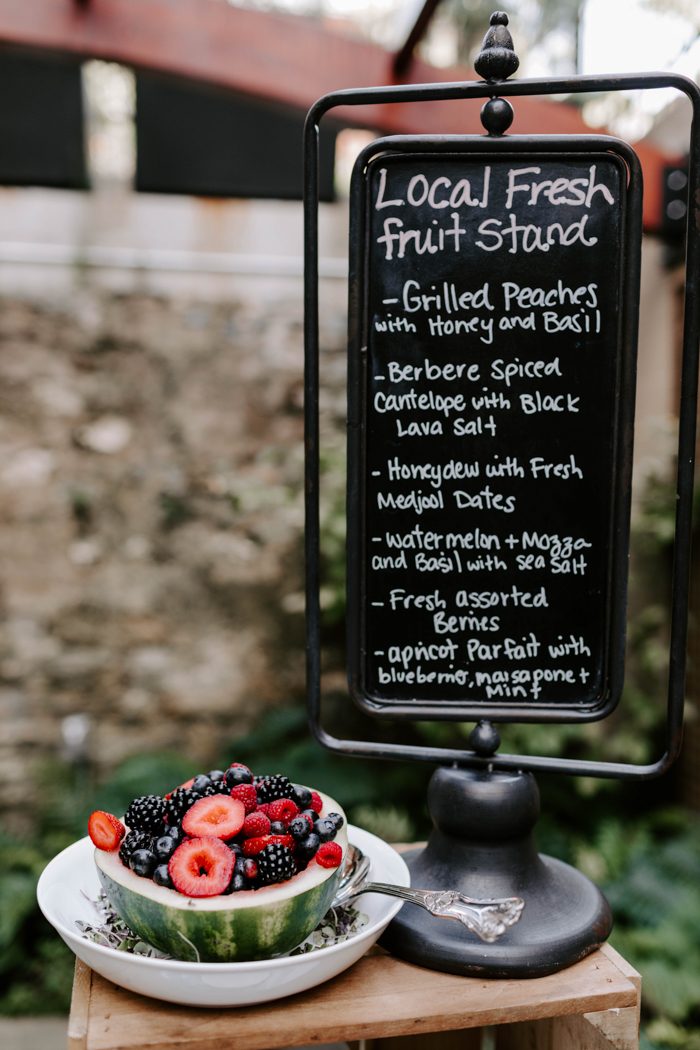 Local Fresh
fruit Stand
- Grilled Peaches
with Honey and Basil
- Berbere Spiced
Cantelope with Black
Lava Salt
- Honeydew with Fresh
Medjool Dates
- watermelon + Mozza
and Basil with sea salt
- Fresh assorted
Berries
- apricot Parfait with
blueberrio, maisapone +
Mint